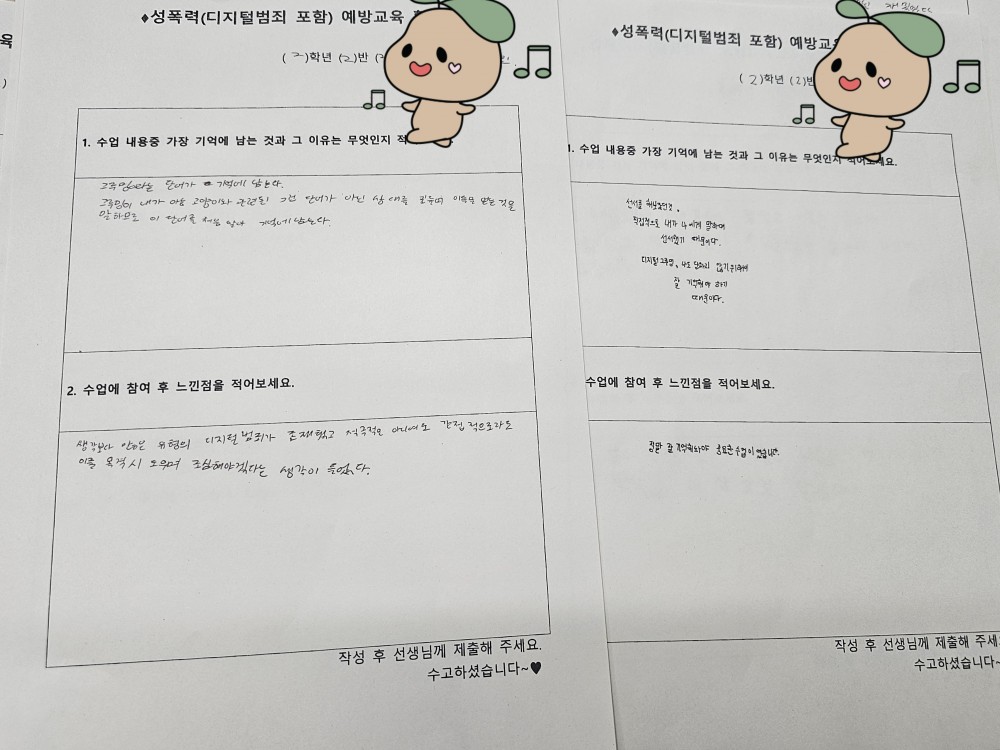 ♦성폭력(디지털범죄 포함) 예방교육
(2)학년 (2)반
1. 수업 내용중 가장 기억에 남는 것과 그 이유는 무엇인지 적
그루밍이라는 단어가 기억에 남는다.
그루밍이 내가 아는 고양이와 관련된 그런 단어가 아닌 상대를 이득을 보는 것을
말하므로 이 단어를 처음 알아 기억에 남는다.
2. 수업에 참여 후 느낀점을 적어보세요.
생각보다 많은 유형의 디지털 범죄가 존재했고 직접적은 아니여도 간접적으로라도
이를 목격시 도우며 조심해야겠다는 생각이 들었다.
작성 후 선생님께 제출해 주세요.
수고하셨습니다~♥
♦성폭력(디지털범죄 포함) 예방교육
(2)학년 (2)반
1. 수업 내용중 가장 기억에 남는 것과 그 이유는 무엇인지 적어보세요.
선서를 해보았던것,
직접적으로 내가 나에게 말하며
선서했기 때문이다.
디지털그루밍, 나도 당하지 않기위해
잘 기억해야 하기
때문이다.
수업에 참여 후 느낀점을 적어보세요.
정말 잘 기억해놔야 중요한 수업이었습니다.
작성 후 선생님께 제출해 주세
수고하셨습니다~